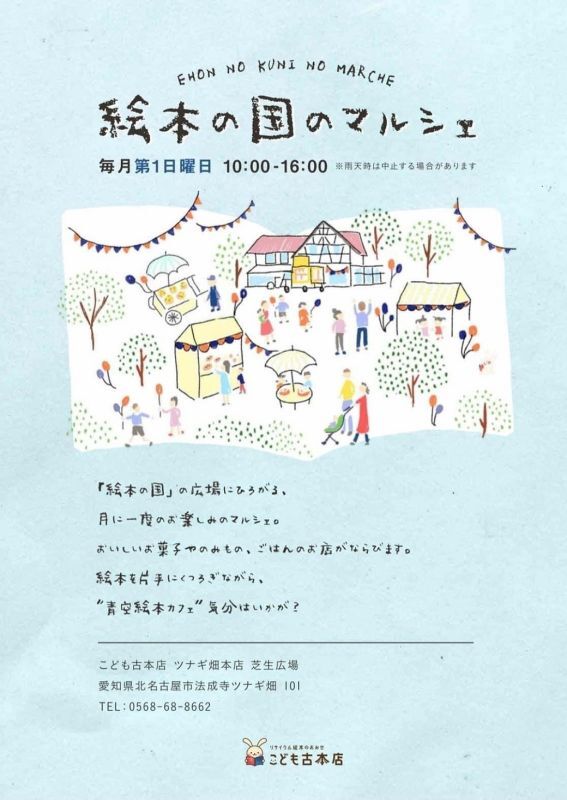 EHON NO KUNI NO MARCHE
絵本の国のマルシェ
毎月第1日曜日 10:00-16:00 ※雨天時は中止する場合があります
『絵本の国』の広場にひろがる、
月に一度のお楽しみのマルシェ。
おいしいお菓子やのみもの、ごはんのお店がならびます。
絵本を片手にくつろぎながら、
"青空絵本カフェ"気分はいかが?
こども古本店 ツナギ畑本店 芝生広場
愛知県北名古屋市法成寺ツナギ畑 101
TEL:0568-68-8662
リサイクル絵本のおみせ
こども古本店